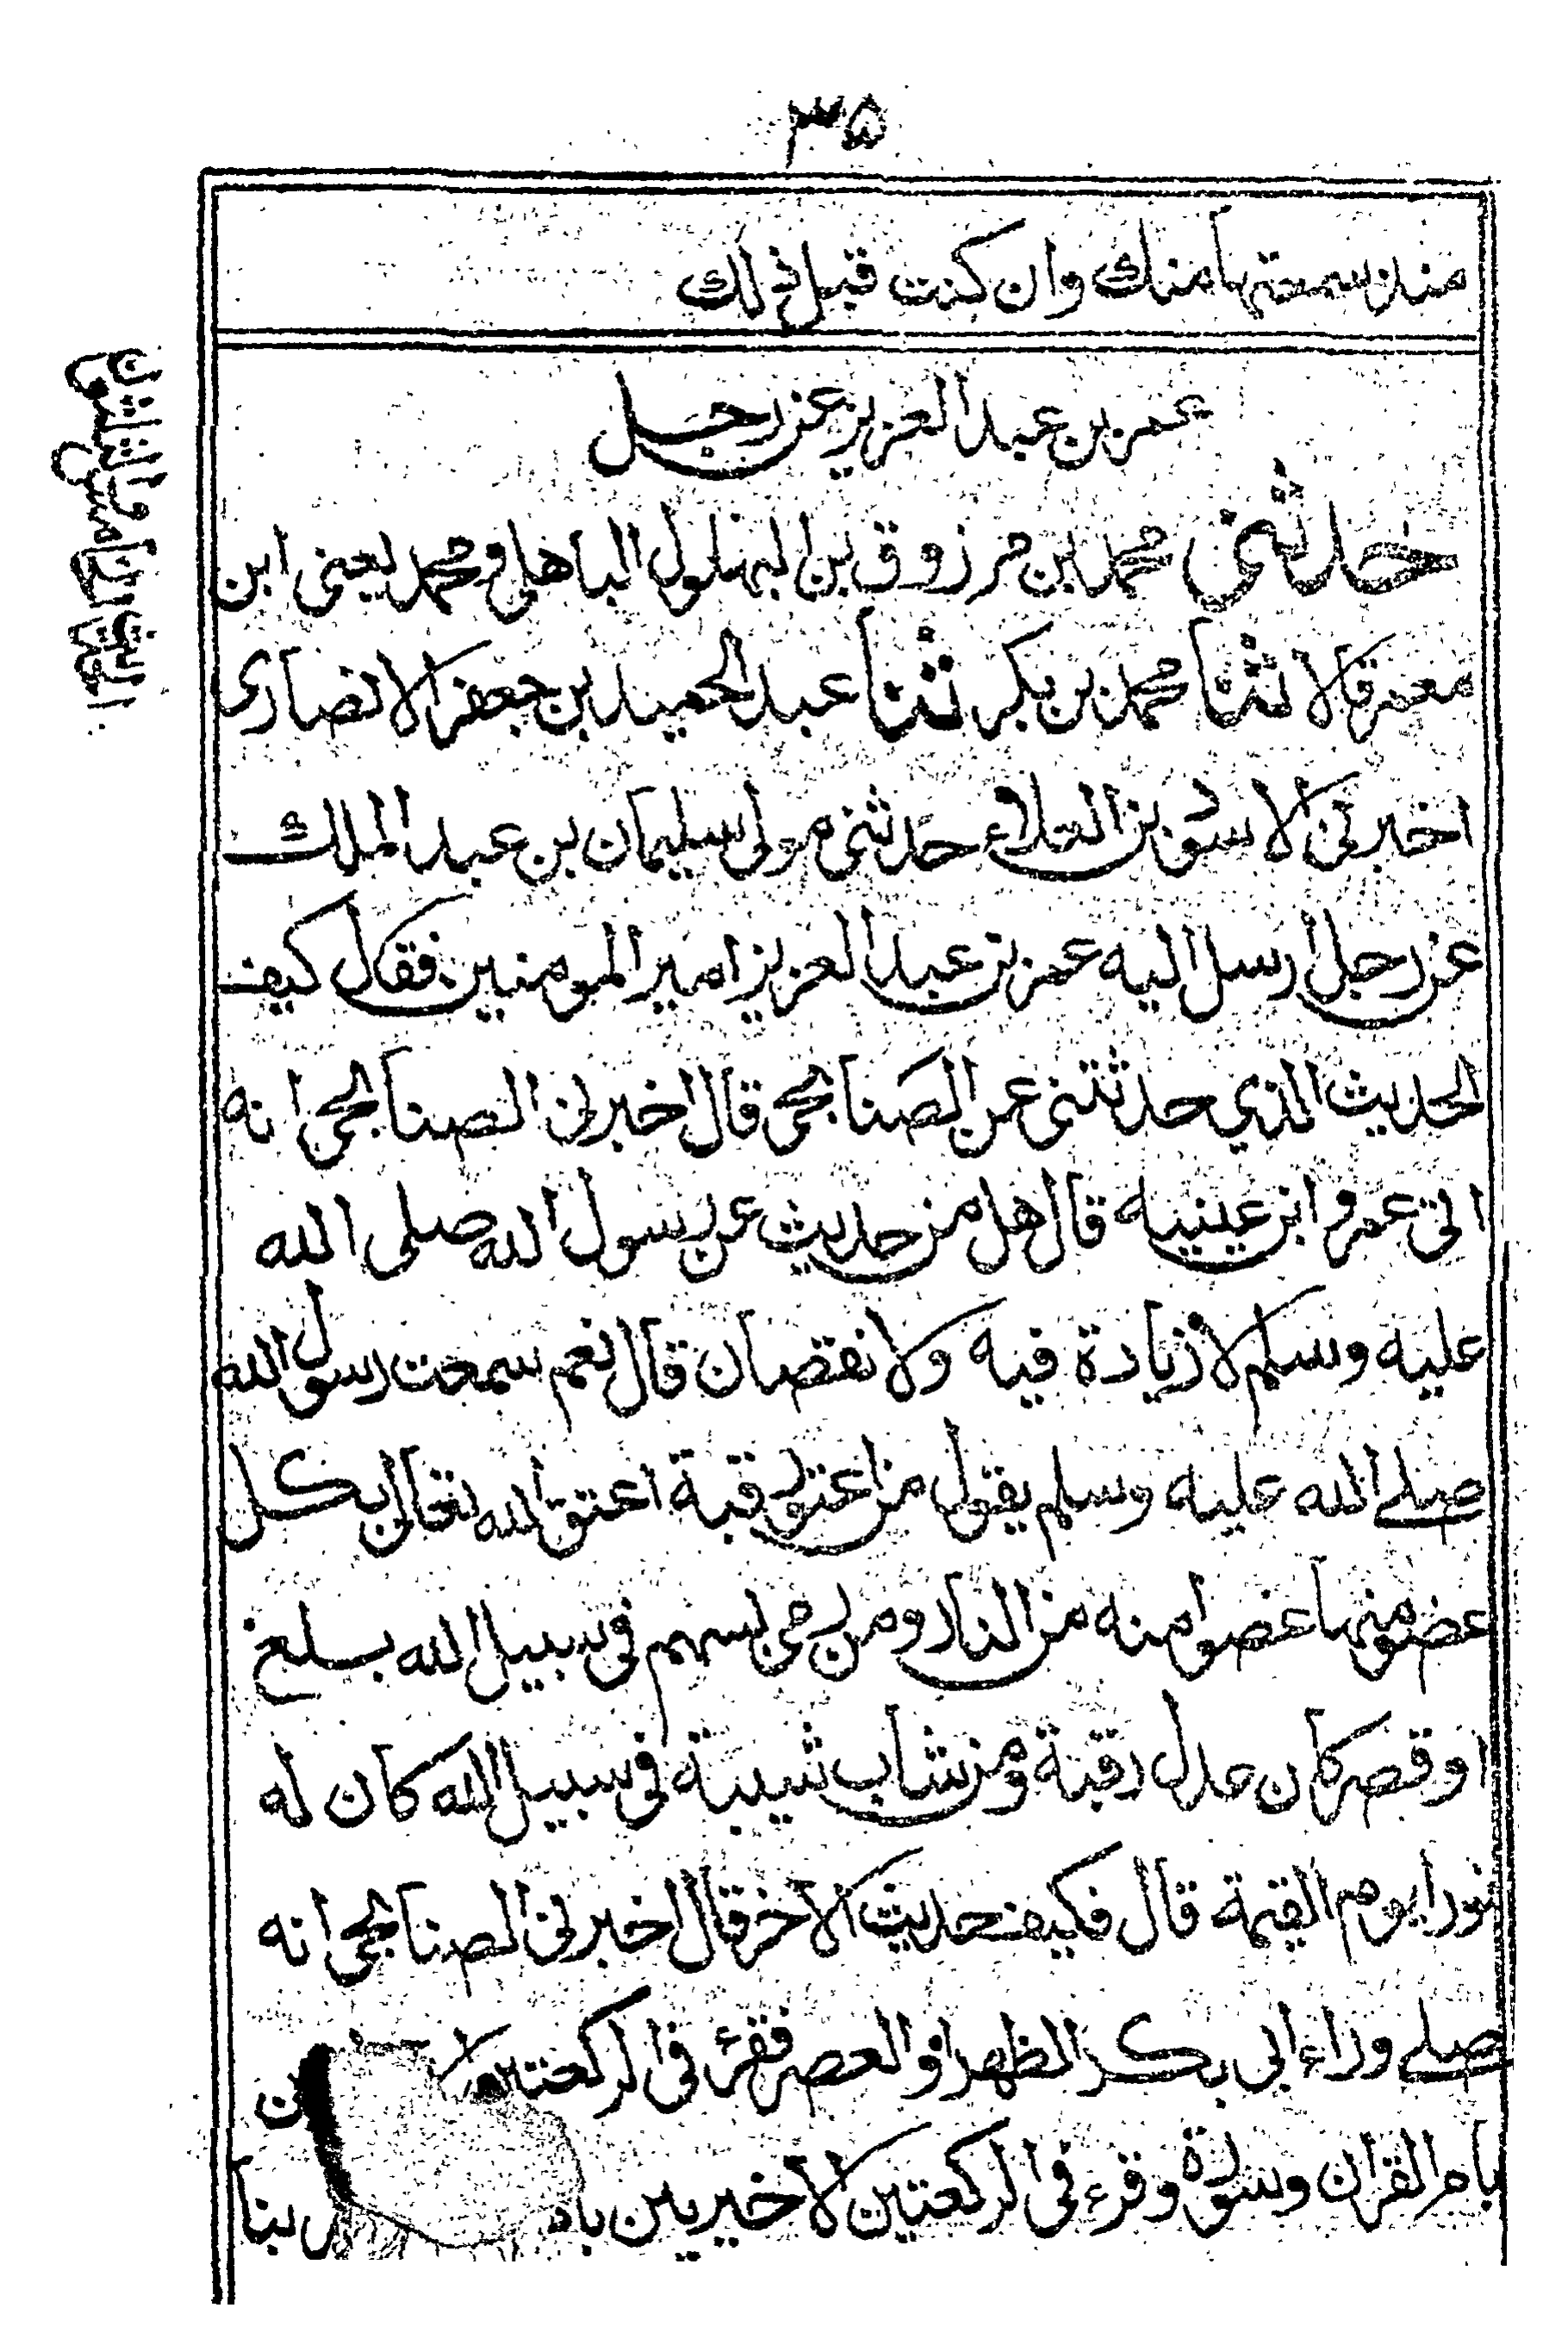 ٣٥
منذ سمعتها منك وان كنت قبل ذلك
عمر بن عبد العزيز عن رجل
حدثني محمد بن مرزوق بن البهلول الباهلي ومحمد يعني ابن
معمر قالا ثنا محمد بن بكر ثنا عبد الحميد بن جعفر الانصاري
اخبرني الاسود بن العلاء حدثني مولى سليمان بن عبد الملك
عن رجل ارسل اليه عمر بن عبد العزيز امير المومنين فقال كيف
الحديث الذي حدثتني عن الصنابحي قال اخبرني الصنابحي انه
اتى عمرو ابن عيينه قال هل من حديث عن رسول الله صلى الله
عليه وسلم لا زيادة فيه ولا نقصان قال نعم سمعت رسول الله
صلے الله عليه وسلم يقول من اعتق رقبة اعتق الله تعالى بكل
عضو منها عضوا منه من النار ومن رمى بسهم في سبيل الله بلغ
او قصر كان عدل رقبة ومن شاب شيبة في سبيل الله كان له
نورا يوم القيمة قال فكيف حديث الاخر قال اخبرني الصنابحي انه
صلے وراء ابي بكر الظهر او العصر فقرء في الركعتين
بام القران وسورة وقرء في الركعتين الاخيرين ربنا